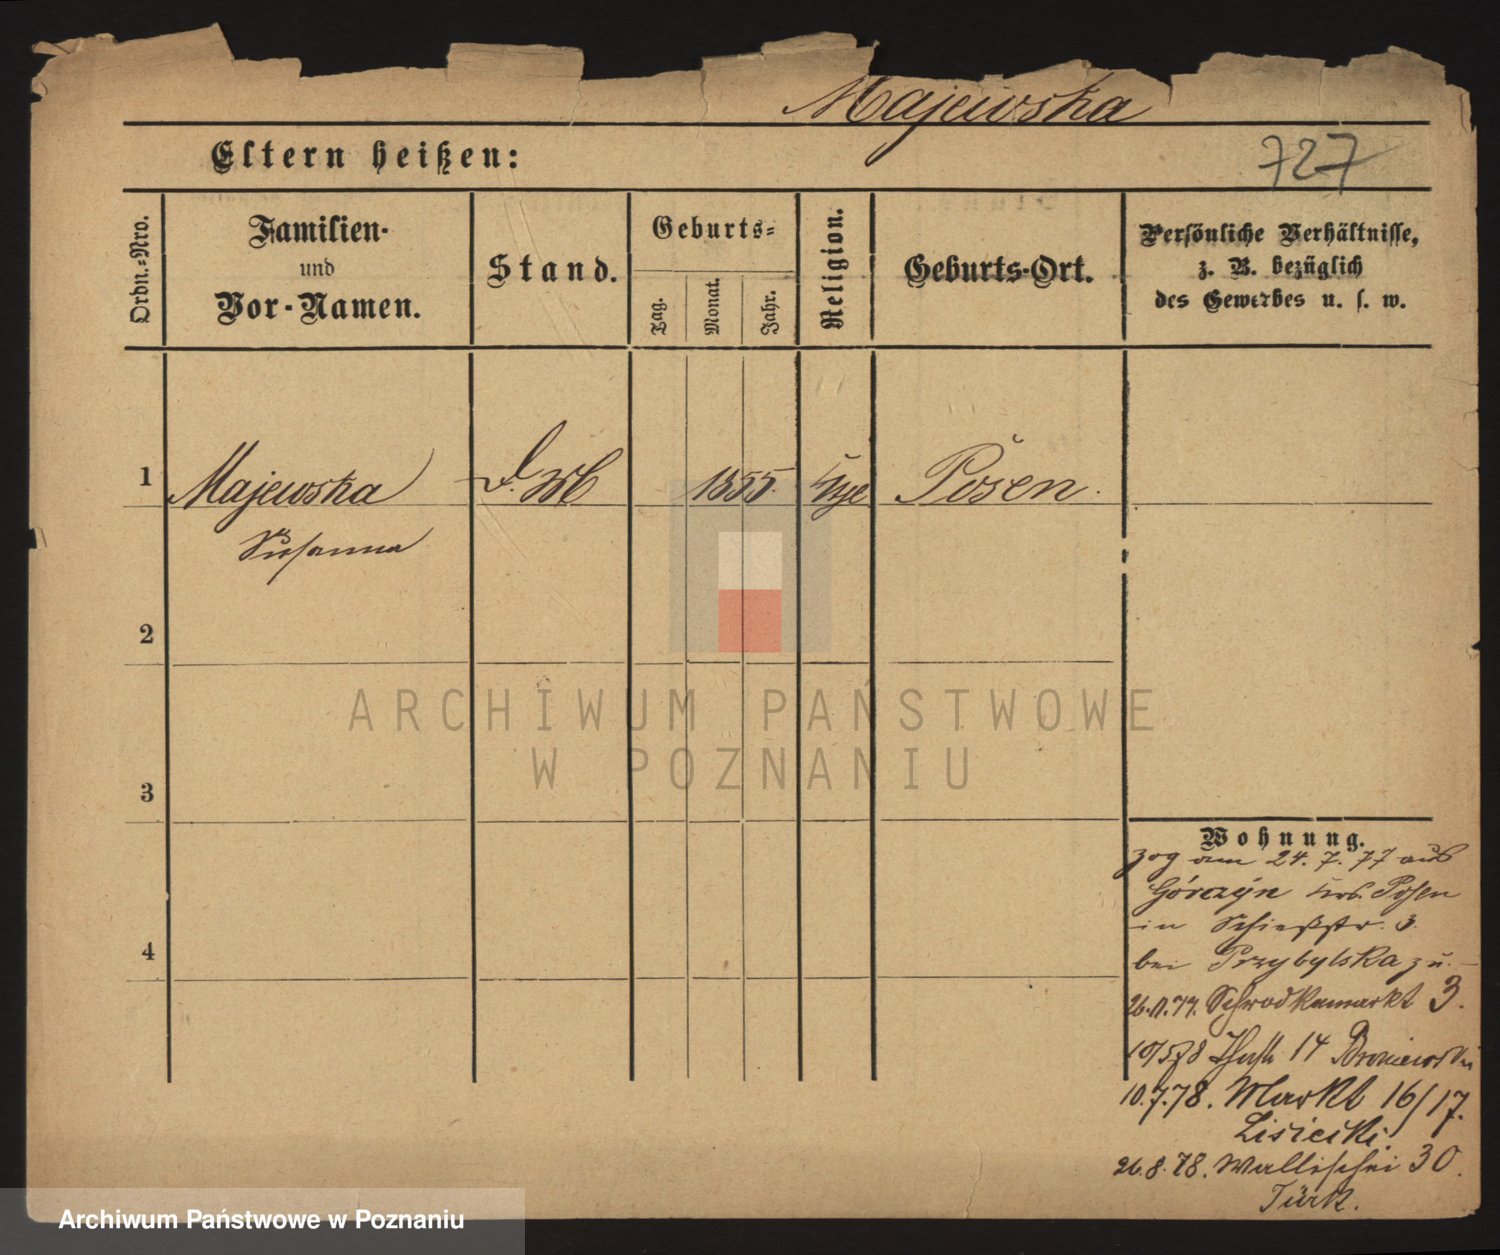 Majewska
Eltern heißen:
727
Ordn.-Nro.
Familien-
und
Vor-Namen.
Stand.
Geburts-
Tag.
Monat.
Jahr.
Religion.
Geburts-Ort.
Persönliche Verhältnisse,
z. B. bezüglich
des Gewerbes u. s. w.
1
Majewska
1855.
Posen.
Susanna
2
ARCHIWUM PAŃSTWOWE
W POZNANIU
3
4
Wohnung.
zog am 24. 7. 77 aus
Górczyn Krs. Posen
in Schießstr. 3.
bei Przybylska zu.
Schrodkamarkt 3.
14 Broniewski
10.7.78. Markt 16/17.
Lisiecki
26.8.78. Wallischei 30.
Türk.
Archiwum Państwowe w Poznaniu